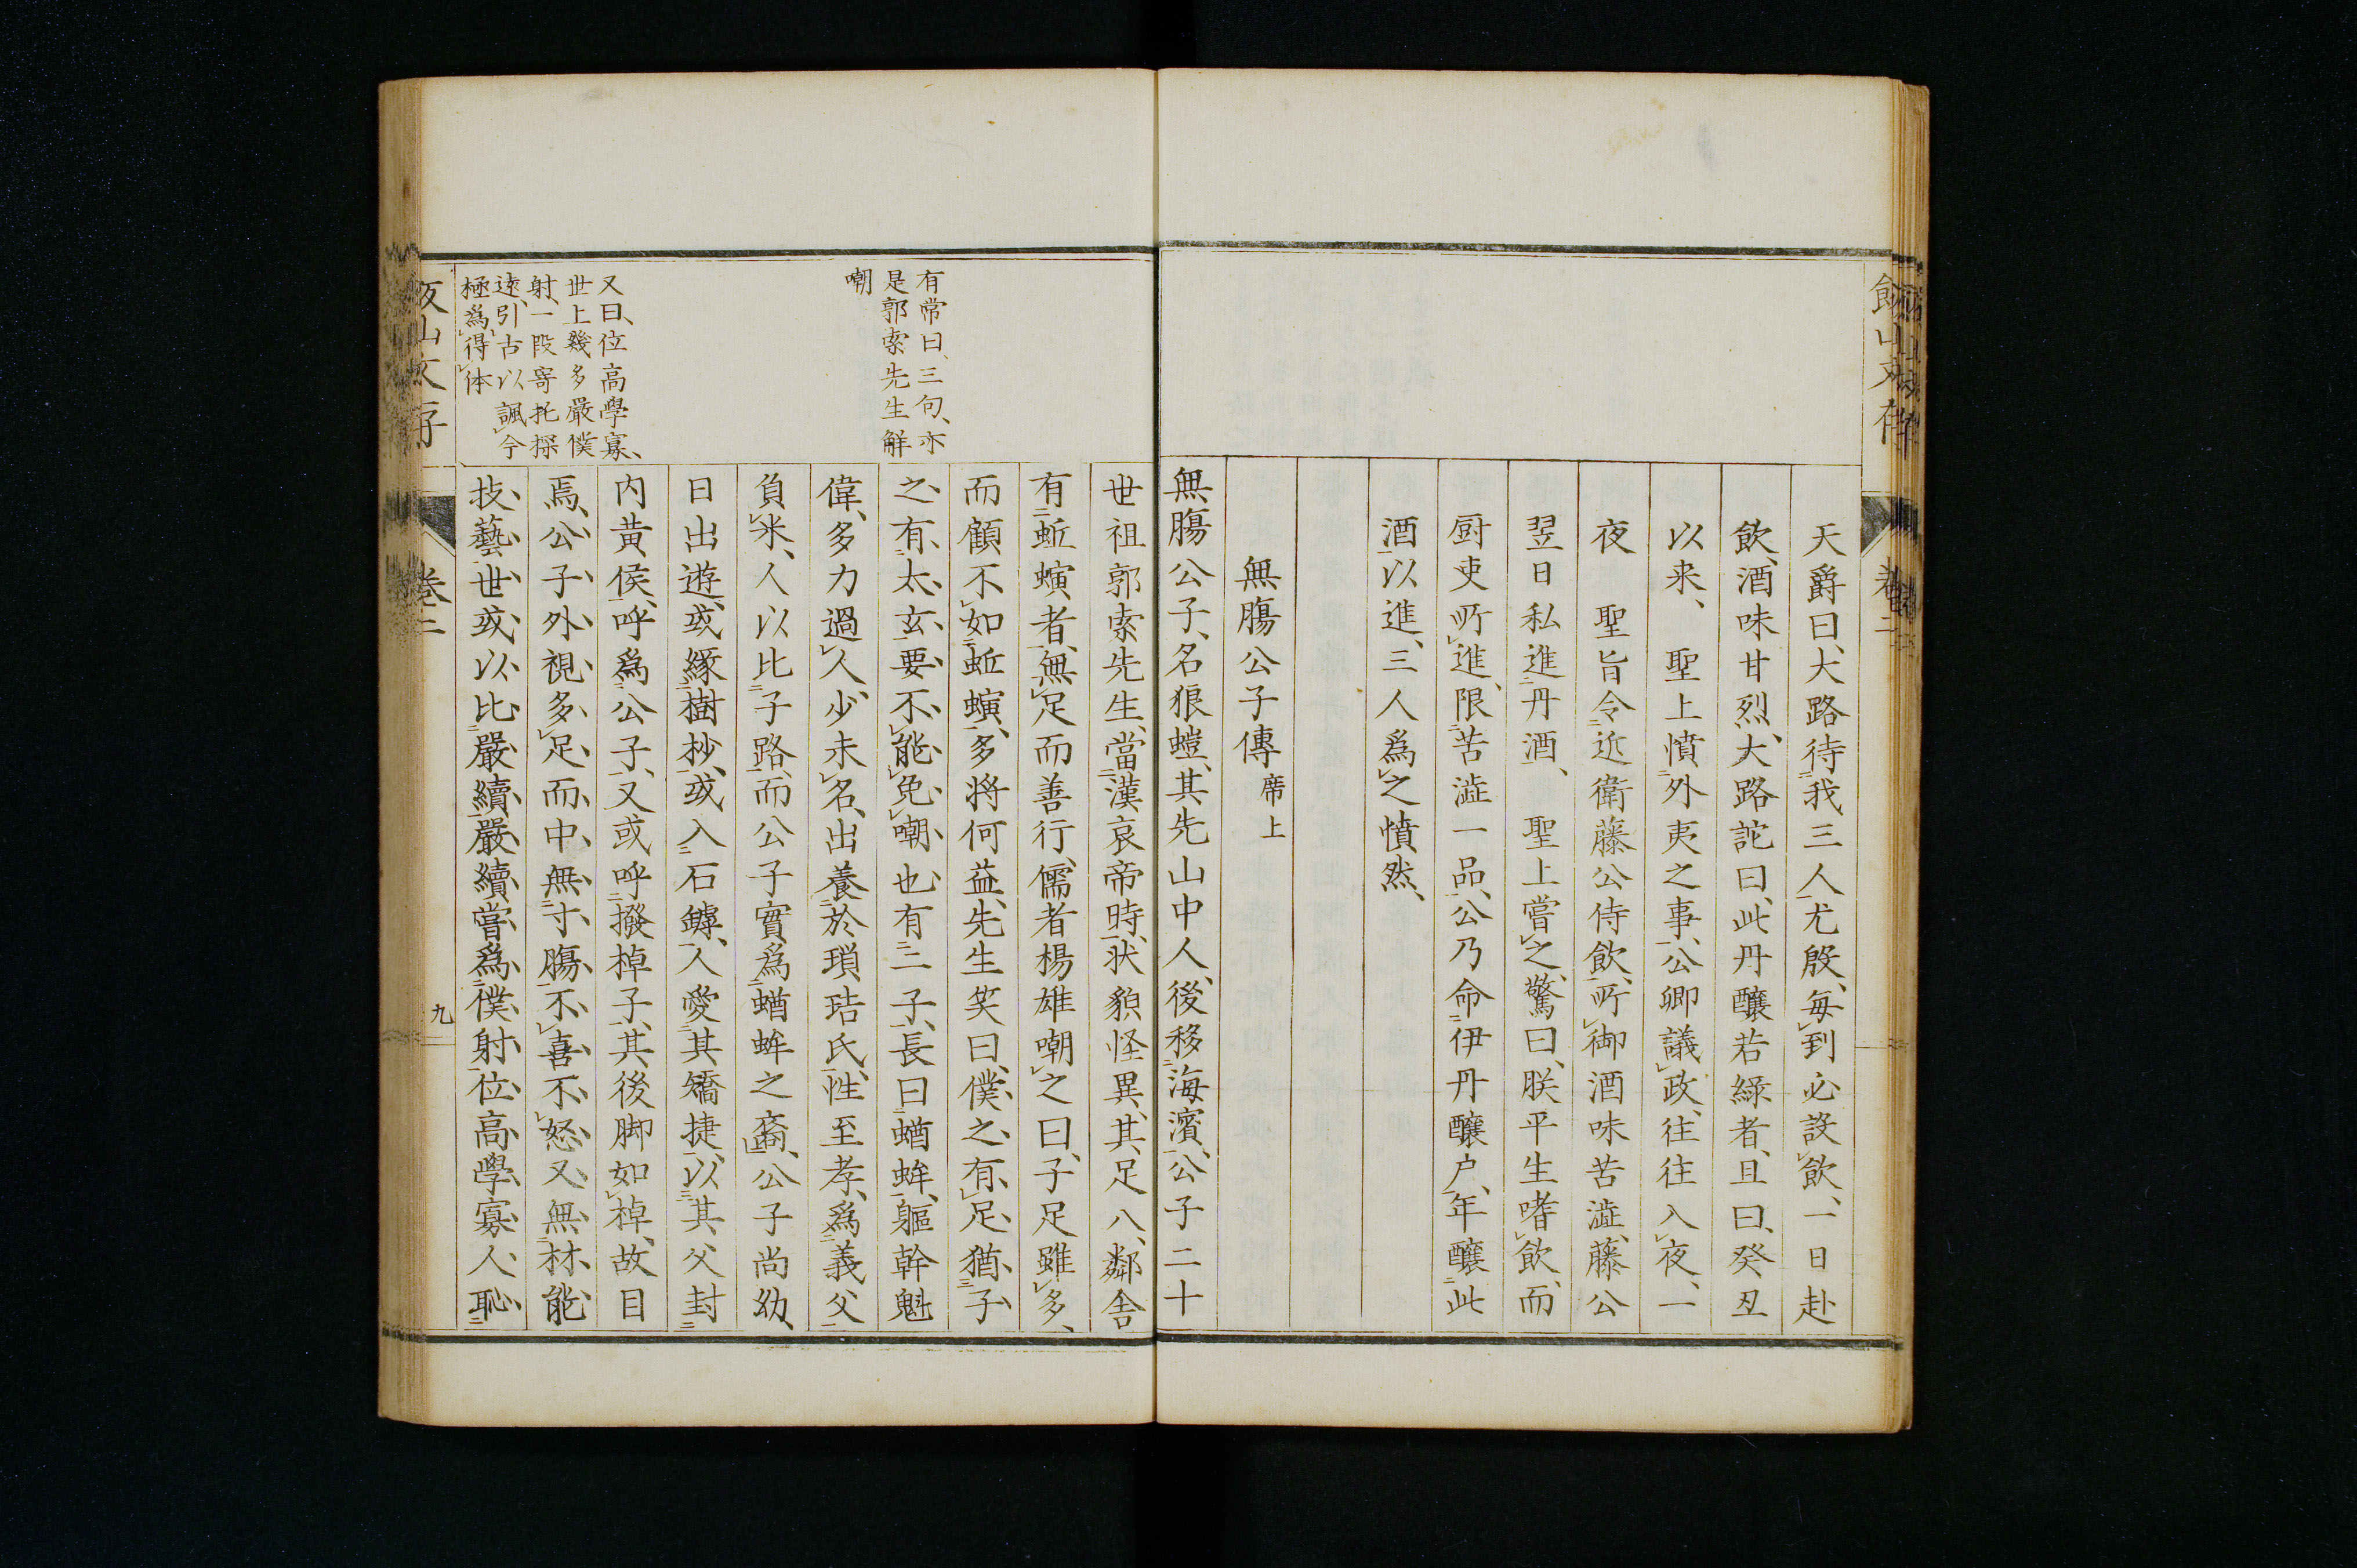 天爵曰、大路待我三人尤殷、毎到必設飲、一日赴
飲、酒味甘烈、大路詑曰、此丹釀若緑者、且曰、癸丑
以来、　聖上憤外夷之事、公卿議政、往往入夜、一
夜　聖旨令近衛藤公侍飲、所御酒味苦澁、藤公
翌日私進丹酒、　聖上嘗之、驚曰、朕平生嗜飲、而
厨吏所進、限苦澁一品、公乃命伊丹釀戸、年釀此
酒以進、三人爲之憤然、
無膓公子傳 席上
無膓公子、名狼螘、其先山中人、後移海濱、公子二十
世祖郭索先生、當漢哀帝時、状貌怪異、其足八、鄰舎
有蚯螾者、無足而善行、儒者楊雄嘲之曰、子足雖多、
而顧不如蚯螾、多將何益、先生笑曰、僕之有足、猶子
之有太玄、要不能免嘲也、有二子、長曰蝤蛑、軀幹魁
偉、多力過人、少未名、出養於瑣琂氏、性至孝、爲義父
負米、人以比子路、而公子實爲蝤蛑之裔、公子尚幼、
日出遊、或緣樹抄、或入石罅、人愛其矯捷、以其父封
内黄侯、呼爲公子、又或呼撥棹子、其後脚如棹、故目
焉、公子外視多足、而中無寸膓、不喜不怒、又無材能
技藝、世或以比嚴續、嚴續嘗爲僕射、位高學寡、人恥
有常曰、三句、亦
是郭索先生解
嘲
又曰、位高學寡、
世上幾多嚴僕
射、一段寄托探
遠、引古以諷今
極爲得体
飯山文存
卷二
九